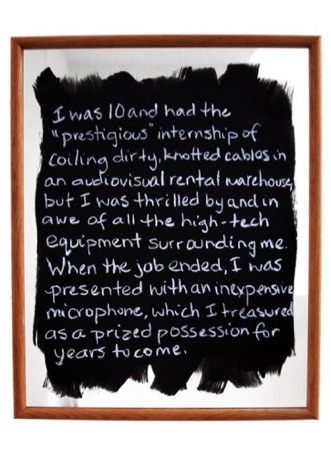 I was 10 and had the
"prestigious" internship of
coiling dirty, knotted cables in
an audiovisual rental warehouse,
but I was thrilled by and in
awe of all the high-tech
equipment surrounding me.
When the job ended, I was
presented with an inexpensive
microphone, which I treasured
as a prized possession for
years to come.